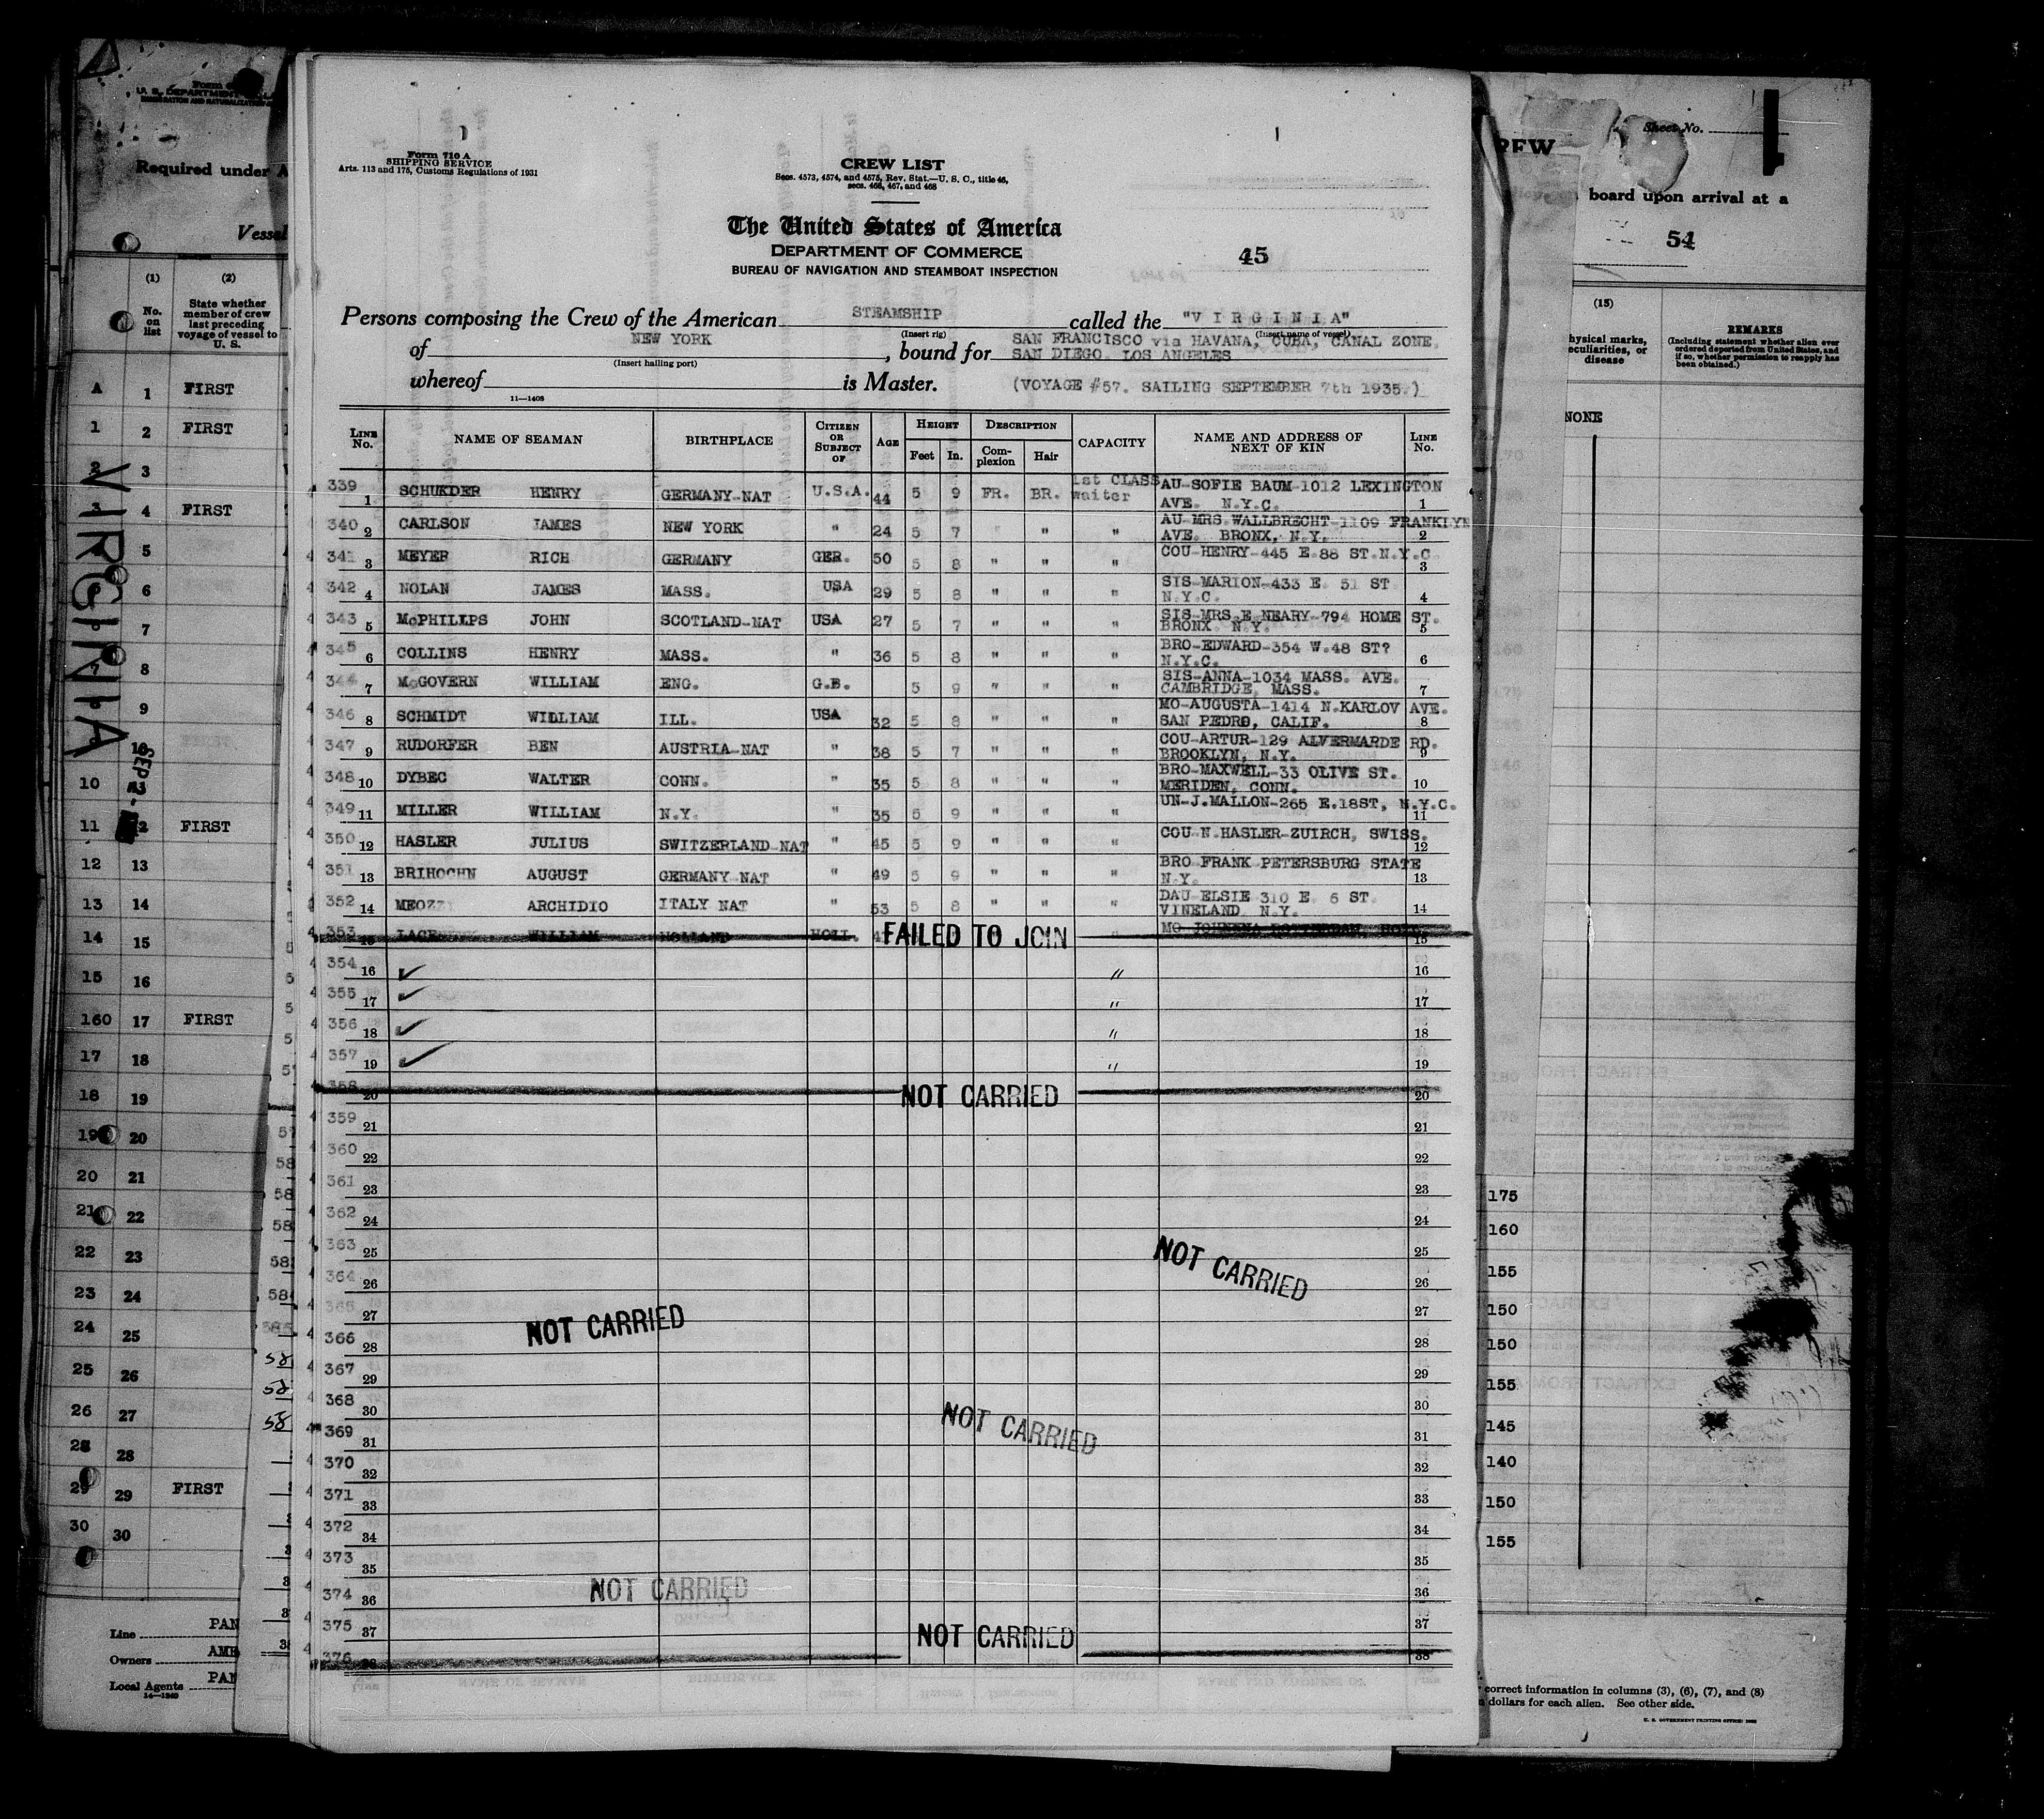 Form 710 A
SHIPPING SERVICE
Arts. 113 and 175, Customs Regulations of 1931
CREW LIST
Secs. 4573, 4574, and 4575, Rev. Stat.—U. S. C., title 46,
secs. 466, 467, and 468
The United States of America
DEPARTMENT OF COMMERCE
BUREAU OF NAVIGATION AND STEAMBOAT INSPECTION
45
Persons composing the Crew of the American STEAMSHIP called the "VIRGINIA"
(Insert rig) (Insert name of vessel)
of NEW YORK, bound for SAN FRANCISCO via HAVANA, CUBA, CANAL ZONE,
SAN DIEGO. LOS ANGELES
(Insert hailing port)
whereof is Master. (VOYAGE #57. SAILING SEPTEMBER 7th 1935.)
11—1408
LINE No. NAME OF SEAMAN BIRTHPLACE CITIZEN OR SUBJECT OF AGE HEIGHT Feet In. DESCRIPTION Complexion Hair CAPACITY NAME AND ADDRESS OF NEXT OF KIN LINE No.
339 1 SCHUKDER HENRY GERMANY-NAT U.S.A. 44 5 9 FR. BR. 1st CLASS waiter AU-SOFIE BAUM-1012 LEXINGTON AVE. N.Y.C. 1
340 2 CARLSON JAMES NEW YORK " 24 5 7 " " " AU-MRS.WALLBRECHT-1109 FRANKLYN AVE. BRONX, N.Y. 2
341 3 MEYER RICH GERMANY GER. 50 5 8 " " " COU-HENRY-445 E.88 ST.N.Y.C 3
342 4 NOLAN JAMES MASS. USA 29 5 8 " " " SIS-MARION-433 E. 51 ST N.Y.C. 4
343 5 McPHILLPS JOHN SCOTLAND-NAT USA 27 5 7 " " " SIS-MRS.E NEARY-794 HOME ST. BRONX N.Y. 5
345 6 COLLINS HENRY MASS. " 36 5 8 " " " BRO-EDWARD-354 W.48 ST? N.Y.C. 6
344 7 McGOVERN WILLIAM ENG. G.B. 5 9 " " " SIS-ANNA-1034 MASS. AVE. CAMBRIDGE, MASS. 7
346 8 SCHMIDT WILLIAM ILL. USA 32 5 8 " " " MO-AUGUSTA-1414 N.KARLOV AVE. SAN PEDRO, CALIF. 8
347 9 RUDORFER BEN AUSTRIA-NAT " 38 5 7 " " " COU-ARTUR-129 ALVERMARDE RD. BROOKLYN, N.Y. 9
348 10 DYBEC WALTER CONN. " 35 5 8 " " " BRO-MAXWELL-33 OLIVE ST. MERIDEN, CONN. 10
349 11 MILLER WILLIAM N.Y. " 35 5 9 " " " UN-J.MALLON-265 E.18ST, N.Y.C. 11
350 12 HASLER JULIUS SWITZERLAND-NAT " 45 5 9 " " " COU N.HASLER-ZUIRCH, SWISS. 12
351 13 BRIHOCHN AUGUST GERMANY NAT " 49 5 9 " " " BRO FRANK PETERSBURG STATE N.Y. 13
352 14 MEOZZI ARCHIDIO ITALY NAT " 53 5 8 " " " DAU ELSIE 310 E. 6 ST. VINELAND N.Y. 14
353 15 WILLIAM HOLLAND HOLL. FAILED TO JOIN " MO ROTTERDAM, HOLL 15
354 16 " 16
355 17 " 17
356 18 " 18
357 19 " 19
358 20 NOT CARRIED 20
359 21 21
360 22 22
361 23 23
362 24 24
363 25 NOT CARRIED 25
364 26 26
365 27 NOT CARRIED 27
366 28 28
367 29 29
368 30 30
369 31 NOT CARRIED 31
370 32 32
371 33 33
372 34 34
373 35 35
374 36 NOT CARRIED 36
375 37 NOT CARRIED 37
376 38 38
Required under A
Vessel
(1) (2)
No. on list
State whether member of crew last preceding voyage of vessel to U. S.
VIRGINIA
A 1 FIRST
1 2 FIRST
2 3
3 4 FIRST
5
6
7
8
9
SEP
10
11 FIRST
12 13
13 14
14 15
15 16
160 17 FIRST
17 18
18 19
19 20
20 21
21 22
22 23
23 24
24 25
25 26
26 27
28 28
29 29 FIRST
30 30
Line PAN
Owners AME
Local Agents PAN
14—1240
REW
Sheet No.
board upon arrival at a
54
(15)
hysical marks, peculiarities, or disease
REMARKS
(Including statement whether alien ever ordered deported from United States, and if so, whether permission to reapply has been obtained.)
NONE
175
160
155
150
150
155
145
140
150
155
correct information in columns (3), (6), (7), and (8)
dollars for each alien. See other side.
U. S. GOVERNMENT PRINTING OFFICE